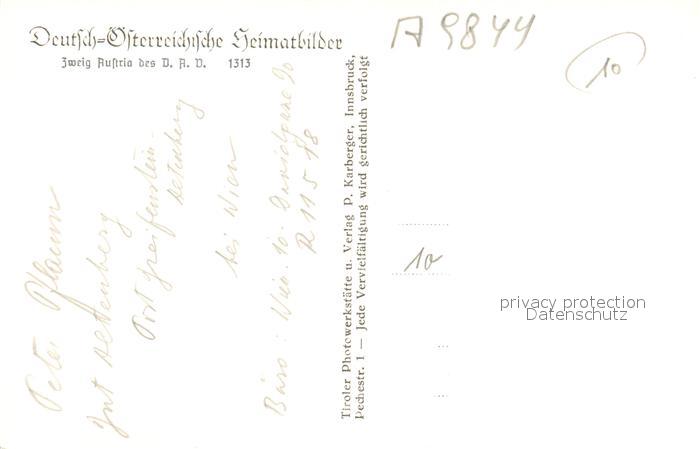 Deutsch-Österreichische Heimatbilder
Zweig Austria des D. A. V. 1313
A9844
10
Peter Pflaum
Gut
Post Greifenstein-
bei Wien
Büro: Wien. 10.
R 11 5 18
Tiroler Photowerkstätte u. Verlag P. Karberger, Innsbruck,
Pechestr. 1 — Jede Vervielfältigung wird gerichtlich verfolgt
10
privacy protection
Datenschutz